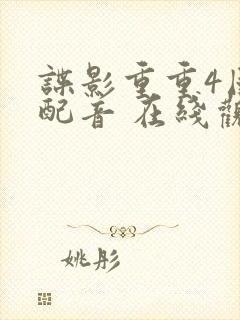 諜影重重4國
配音 在綫觀
姚彤